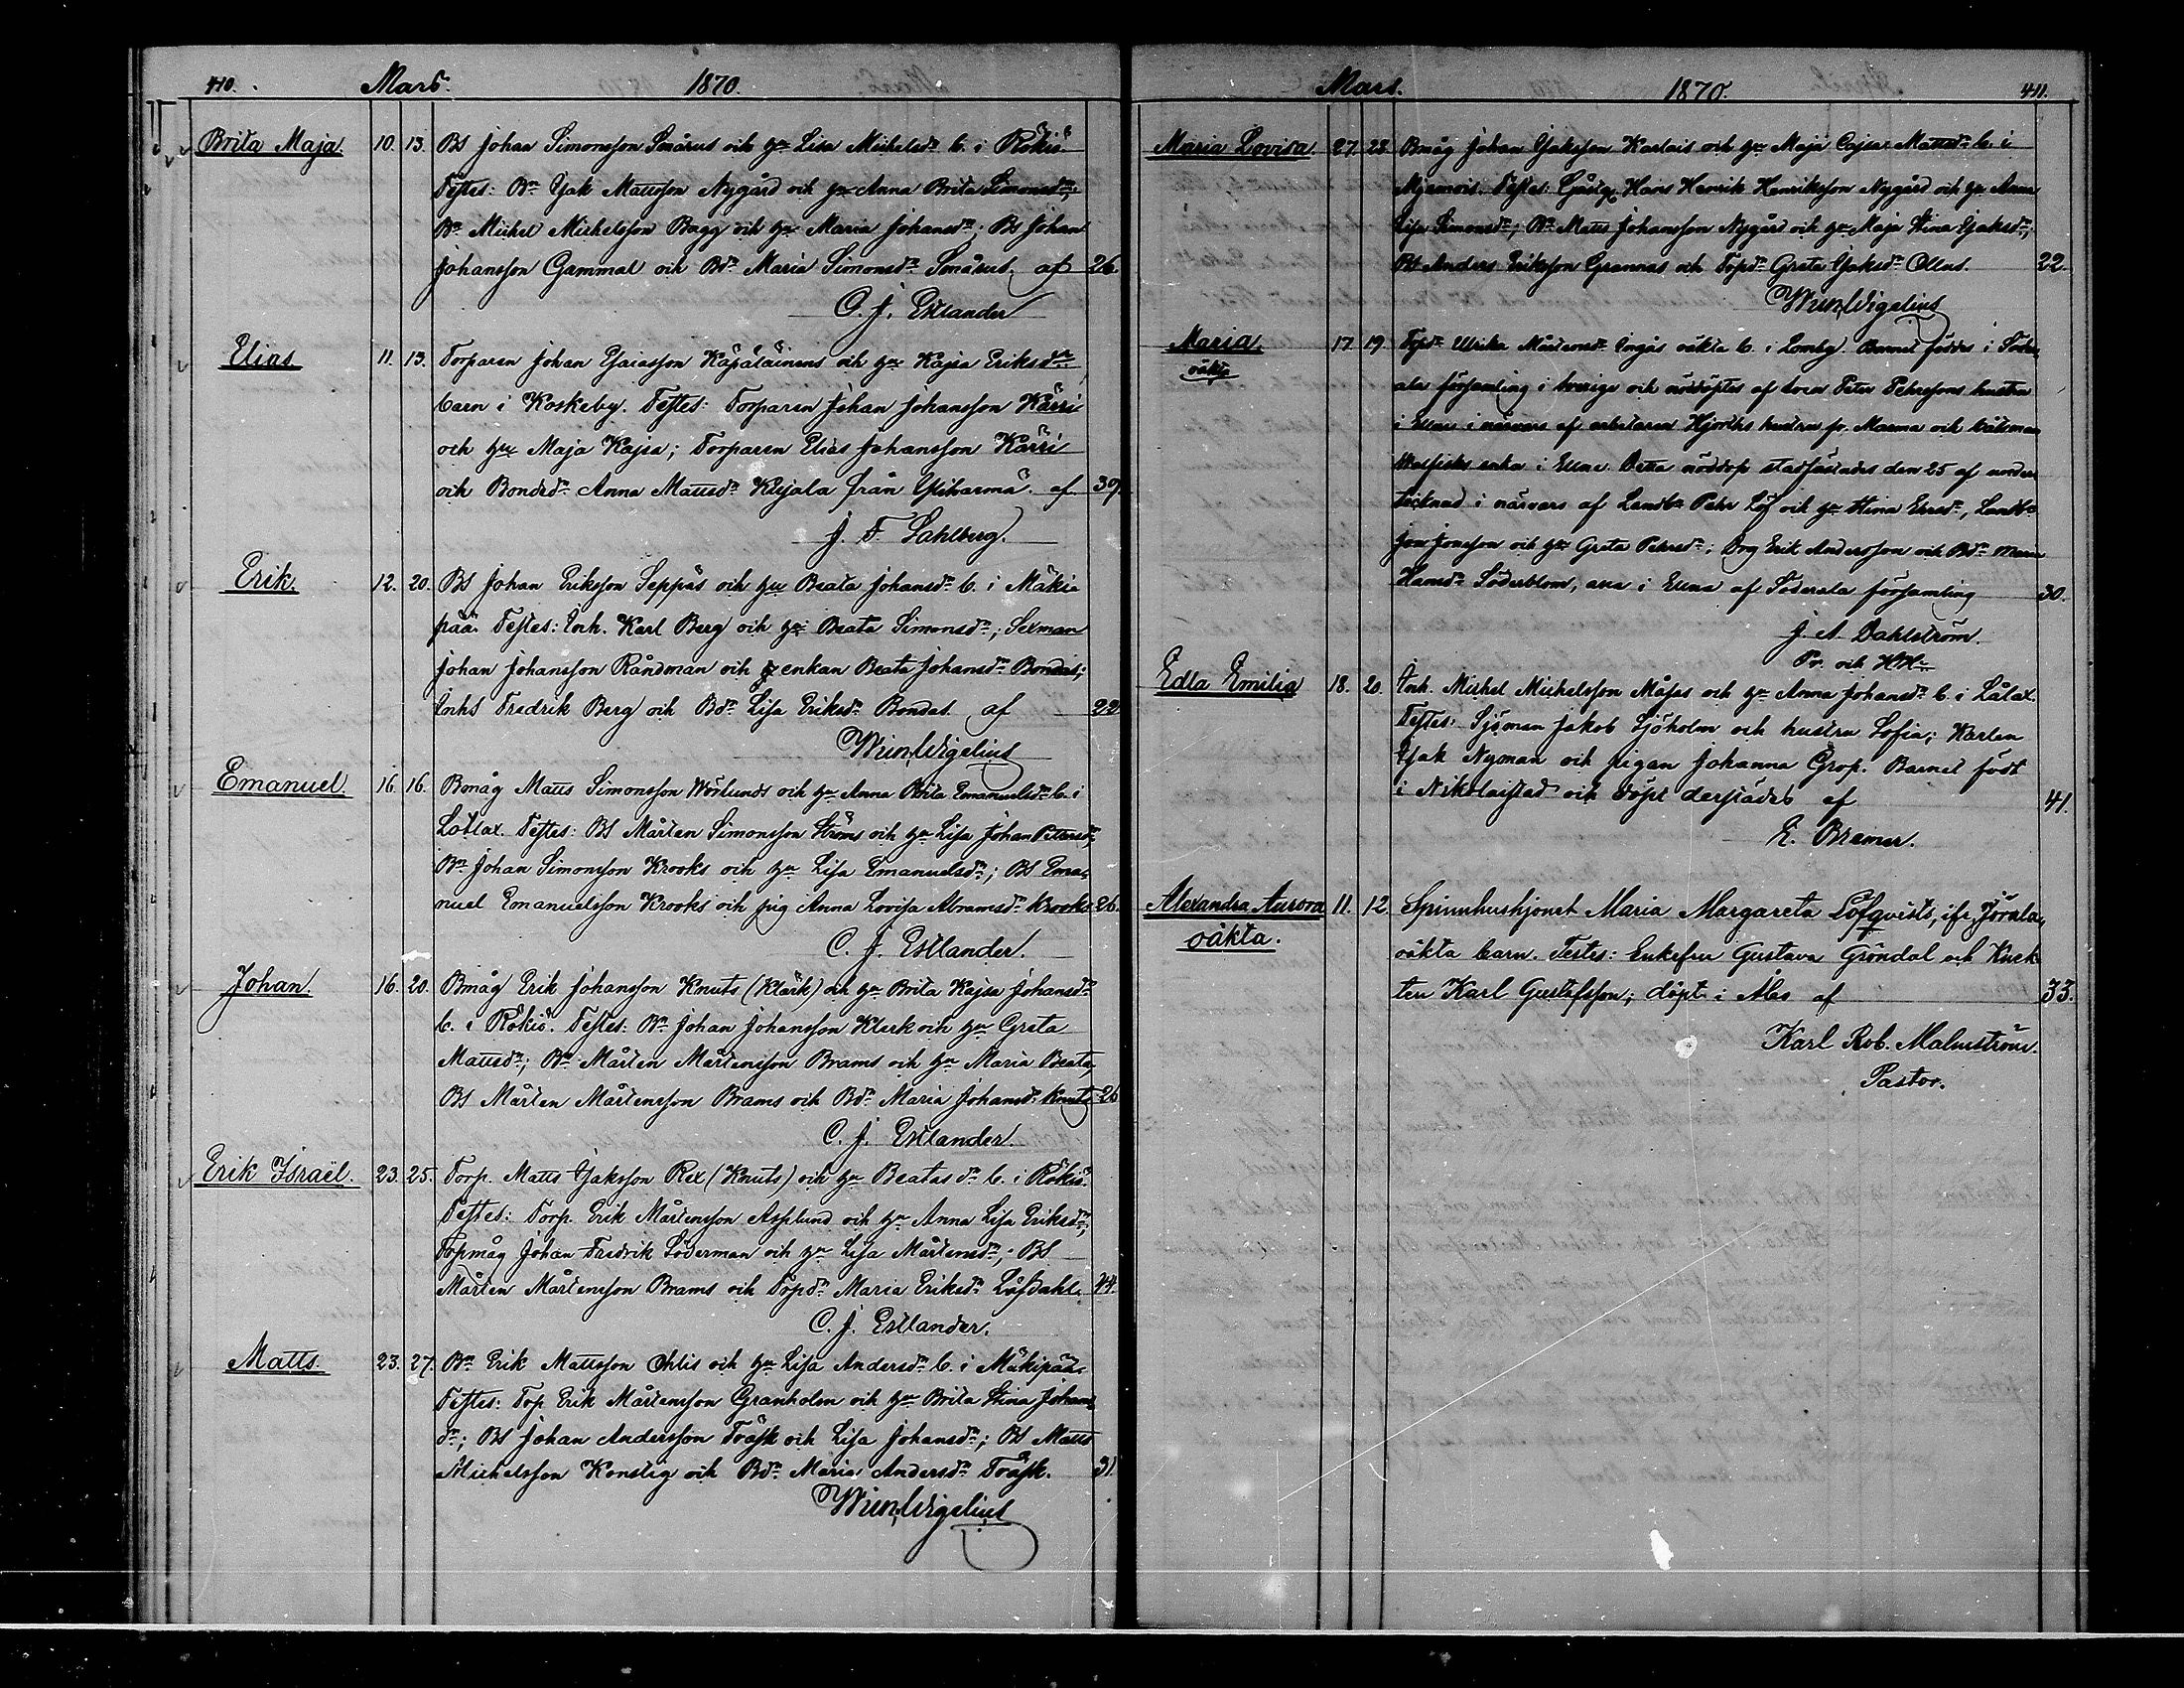 410. Mars. 1870.
Brita Maja. 10. 13. BS Johan Simonsson Smårus och hu Lisa Michelsdr b. i Rökiö.
Testes: Bn Isak Mattsson Nygård och hu Anna Brita Simonsdr;
Bn Michel Michelsson Bagg och hu Maria Johansdr; BS Johan
Johansson Gammal och Bdr Maria Simonsdr Smårus. af 26.
C. J. Estlander
Elias. 11. 13. Torparen Johan Esaiasson Käpäläinens och hu Kajsa Eriksdrs
barn i Koskeby. Testes: Torparen Johan Johansson Kärri
och hu Maja Kajsa; Torparen Elias Johansson Kärri
och Bondedr Anna Mattsdr från Ylihärmä. af 39.
J. F. Sahlberg.
Erik. 12. 20. BS Johan Eriksson Seppäs och hu Beata Johansdr b. i Mäkia
pää. Testes: Inh. Karl Berg och hu Beata Simonsdr; Sexman
Johan Johansson Råndman och enkan Beata Johansdr Bondas;
InhS Fredrik Berg och Bdr Lisa Eriksdr Bondas. af 22
Wilh. Wigelius
Emanuel. 16. 16. Bmåg Matts Simonsson Wörlunds och hu Anna Brita Emanuelsdr b. i
Lotlax. Testes: BS Mårten Simonsson Ströms och hu Lisa Johan Pettersdr;
Bn Johan Simonsson Krooks och hu Lisa Emanuelsdr; BS Ema-
nuel Emanuelsson Krooks och pig Anna Lovisa Abramsdr Krooks 26.
C. J. Estlander.
Johan. 16. 20. Bmåg Erik Johansson Knuts (Klärk) och hu Brita Kajsa Johansdr
b. i Rökiö. Testes: Bn Johan Johansson Klerk och hu Greta
Mattsdr; Bn Mårten Mårtensson Brams och hu Maria Beata,
BS Mårten Mårtensson Brams och Bdr Maria Johansdr Knuts 26
C. J. Estlander.
Erik Israël. 23. 25. Torp. Matts Isaksson Rex (Knuts) och hu Beatas dr b. i Rökiö.
Testes: Torp. Erik Mårtensson Asplund och hu Anna Lisa Eriksdr;
Topmåg Johan Fredrik Söderman och hu Lisa Mårtensdr; BS
Mårten Mårtensson Brams och Topdr Maria Eriksdr Löfdahl. 44.
C. J. Estlander.
Matts. 23. 27. Bn Erik Mattsson Ohlis och hu Lisa Andersdr b. i Mäkipää.
Testes: Top Erik Mårtensson Granholm och hu Brita Stina Johans
dr; BS Johan Andersson Träsk och Lisa Johansdr; BS Matts
Michelsson Konstig och Bdr Maria Andersdr Träsk. 31.
Wilh. Wigelius
Mars. 1870. 411.
Maria Lovisa 27. 28. Bmåg Johan Isaksson Karlais och hu Maja Cajsa Mattsdr b. i
Mjemois. Testes: Hans Henrik Henriksson Nygård och hu Anna
Lisa Simonsdr; Bn Matts Johansson Nygård och hu Maja Stina Isaksdr;
BS Anders Eriksson Grannas och Topdr Greta Isaksdr Ollus. 22.
Wilh. Wigelius
Maria. 17. 19. Topdr Ulrika Mårtensdr Ingås oäkta b. i Lomby. Barnet föddes i Söder-
oäkta
ala församling i Sverige och nöddöptes af Peter Pehrssons hustru
i i närvaro af arbetaren Hjorths hustru
enka i Detta nöddop stadfästades den 25 af under
tecknad i närvaro af Landbn Pehr Löf och hu Stina Ersdr, Landbn
Jon Jonsson och hu Greta Pehrsdr; Dng Erik Andersson och Bdr Maria
Hansdr Söderblom, alla i af Söderala församling 30.
J. A. Dahlström.
Pr. och
Edla Emilia 18. 20. Inh. Michel Michelsson Måsas och hu Anna Johansdr b. i Lålax.
Testes: Sjöman Jakob Sjöholm och hustru Sofia; Karlen
Isak Nyman och pigan Johanna Grop. Barnet födt
i Nikolaistad och döpt derstädes af 41.
E. Bremer.
Alexandra Aurora 11. 12. Spinnhushjonet Maria Margareta Löfqvists, ifr. Jörala,
oäkta. oäkta barn. Testes: Enkefru Gustava Gröndal och Knek-
ten Karl Gustafsson; döpt i Åbo af 33.
Karl Rob. Malmström.
Pastor.